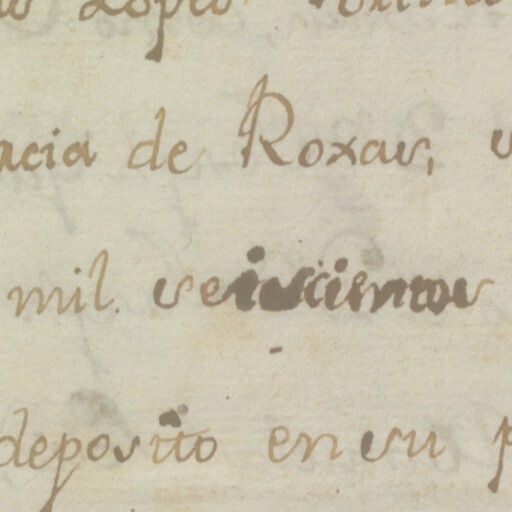 Lopez
acia de Roxas,
mil seiscientos
deposito en su p